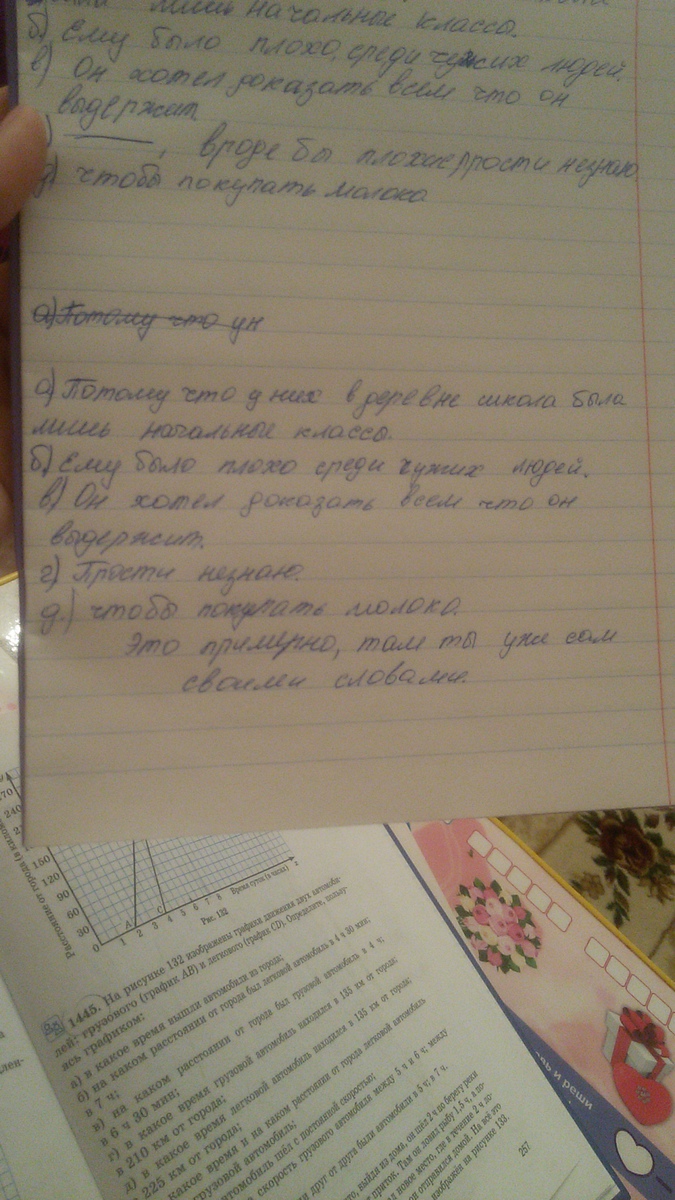 лишь начальное классы.
б) Ему было плохо, среди чужих людей.
в) Он хотел доказать всем что он
выдержит
, вроде бы незнаю
д) чтобы покупать молоко
а) Потому что ун
а) Потому что у них в деревне школа была
лишь начальные классы.
б) Ему было плохо среди чужих людей.
в) Он хотел доказать всем что он
выдержит.
г) Прости незнаю.
д.) чтобы покупать молоко.
Это примерно, там ты уже сам
своими словами.
270
240
150
120
90
60
30
0
1 2 3 4 5 6 7 8
A C
Время суток (в часах)
Расстояние от города (в
Рис. 132
1445. На рисунке 132 изображены графики движения двух автомоби-
лей: грузового (график AB) и легкового (график CD). Определите, пользу-
ясь графиком:
а) в какое время вышли автомобили из города;
б) на каком расстоянии от города был легковой автомобиль в 4 ч 30 мин;
в 7 ч;
в) на каком расстоянии от города был грузовой автомобиль в 4 ч;
в 6 ч 30 мин;
г) в какое время грузовой автомобиль находился в 135 км от города;
в 210 км от города;
д) в какое время легковой автомобиль находился в 135 км от города;
225 км от города;
какое время и на каком расстоянии от города легковой автомобиль
грузовой автомобиль;
автомобиль шёл с постоянной скоростью;
скорость грузового автомобиля между 5 ч и 6 ч; между
друг от друга были автомобили в 5 ч; в 7 ч.
выйдя из дома, он шёл 2 ч по берегу реки
приток. Там он ловил рыбу 1,5 ч, а по-
новое место, где в течение 2 ч
он отправился домой. На всё это
изображён на рисунке 133.
257
ь и реши